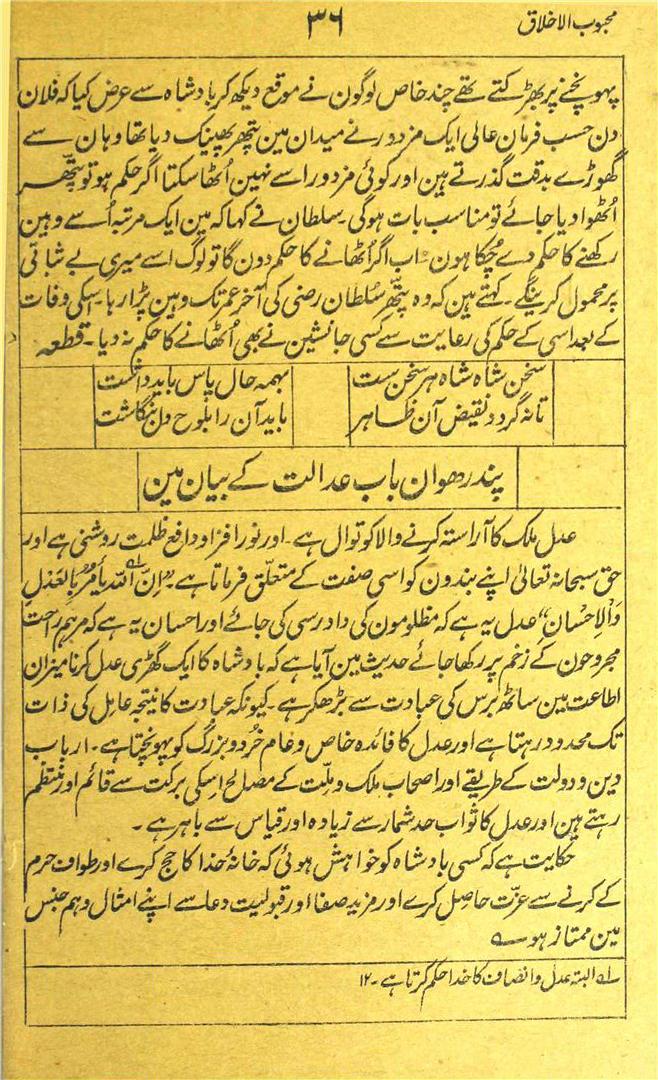 محبوب الاخلاق
۳۶
پہونچنے پر بھڑکتے تھے چند خاص لوگون نے موقع دیکھ کر بادشاہ سے عرض کیا کہ فلان
دن حسب فرمان عالی ایک مزدور نے میدان مین پتھر پھینک دیا تھا وہان سے
گھوڑے بدقت گذرتے ہین اور کوئی مزدور اسے نہین اُٹھا سکتا اگر حکم ہو تو پتّھر
اُٹھوا دیا جائے تو مناسب بات ہوگی۔ سلطان نے کہا کہ مین ایک مرتبہ اُسے وہین
رکھنے کا حکم دے چُکا ہون۔ اب اگر اُٹھانے کا حکم دون گا تو لوگ اسے میری بے ثباتی
پر محمول کرینگے۔ کہتے ہین کہ وہ پتھر سُلطان رضی کی آخر عمر تک وہین پڑا رہا۔ اسکی وفات
کے بعد اسی کے حکم کی رعایت سے کسی جانشین نے بھی اُٹھانے کا حکم نہ دیا۔ قطعہ
سخن شاہ شاہ ہر سخن ست
بہمہ حال پاس باید داشت
تا نہ گردد نقیض آن ظاہر
باید آن را بلوح دل نگاشت
پندرھوان باب عدالت کے بیان مین
عدل ملک کا آراستہ کرنے والا کوتوال ہے۔ اور نور افزا و دافع ظلمت روشنی ہے اور
حق سبحانہ تعالیٰ اپنے بندون کو اسی صفت کے متعلّق فرماتا ہے۔ "اِنّ اللّٰہَ یَأمُرُ بِالعَدلِ
وَالاِحْسان" عدل یہ ہے کہ مظلومون کی دادرسی کی جائے اور احسان یہ ہے کہ مرہم راحت
مجروحون کے زخم پر رکھا جائے حدیث مین آیا ہے کہ بادشاہ کا ایک گھڑی عدل کرنا میزان
اطاعت مین ساٹھ برس کی عبادت سے بڑھکر ہے۔ کیونکہ عبادت کا نتیجہ عامل کی ذات
تک محدود رہتا ہے اور عدل کا فائدہ خاص و عام خُرد و بزرگ کو پہونچتا ہے۔ ارباب
دین و دولت کے طریقے اور اصحاب ملک و ملّت کے مصالح اسکی برکت سے قائم اور منتظم
رہتے ہین اور عدل کا ثواب حد شمار سے زیادہ اور قیاس سے باہر ہے۔
حکایت ہے کہ کسی بادشاہ کو خواہش ہوئی کہ خانۂ خدا کا حج کرے اور طواف حرم
کے کرنے سے عزّت حاصل کرے اور مزید صفا اور قبولیت دعا سے اپنے امثال و ہم جنس
مین ممتاز ہو
لہ البتہ عدل و انصاف کا خدا حکم کرتا ہے۔ ۱۲